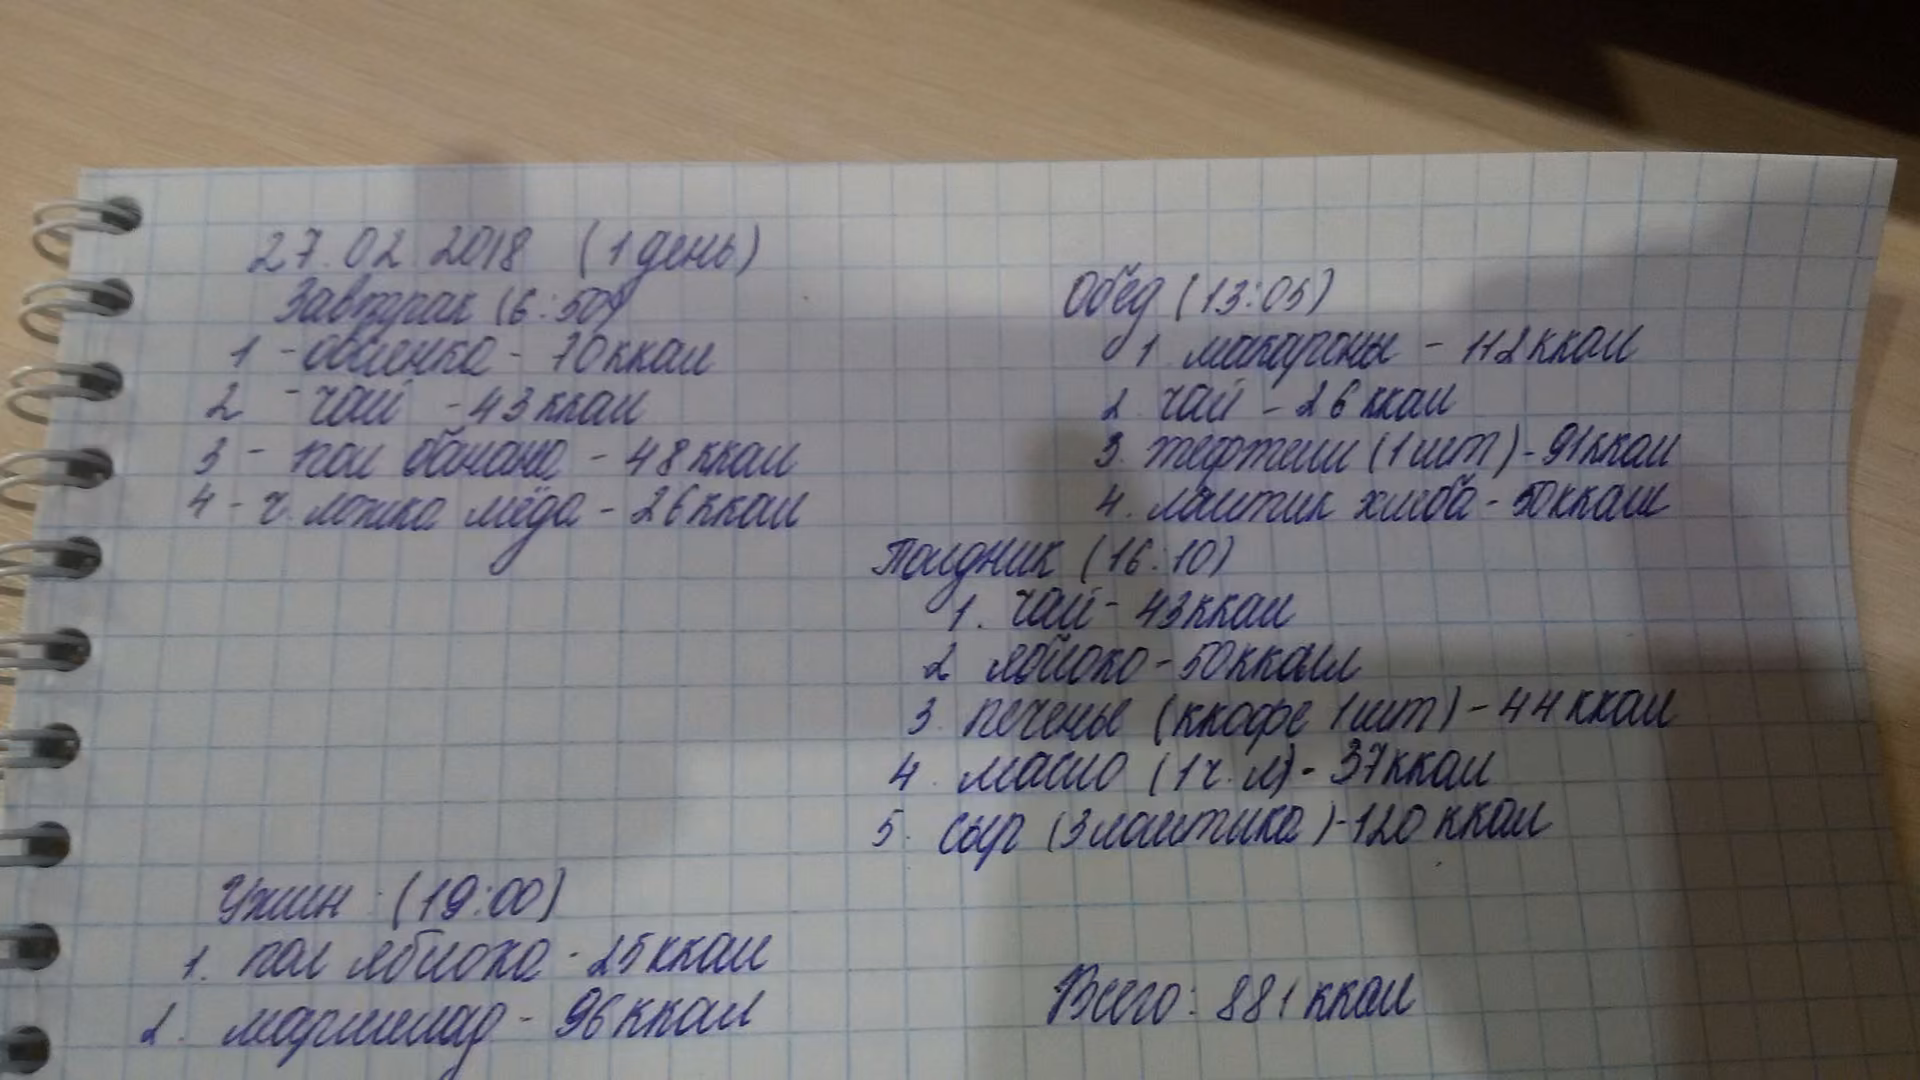 27.02.2018 (1 день)
Завтрак (6:50)
1 - овсянка - 70 ккал
2 - чай - 43 ккал
3 - пол банана - 48 ккал
4 - ч. ложка мёда - 26 ккал
Обед (13:05)
1 макароны - 112 ккал
2. чай - 26 ккал
3. тефтели (1 шт) - 91 ккал
4. ломтик хлеба - 50 ккал
Полдник (16:10)
1. чай - 43 ккал
2 яблоко - 50 ккал
3. печенье (ккофе 1 шт) - 44 ккал
4. масло (1 ч. л) - 37 ккал
5. сыр (3 ломтика) - 120 ккал
Ужин (19:00)
1. пол яблока - 25 ккал
2. мармелад - 96 ккал
Всего: 881 ккал